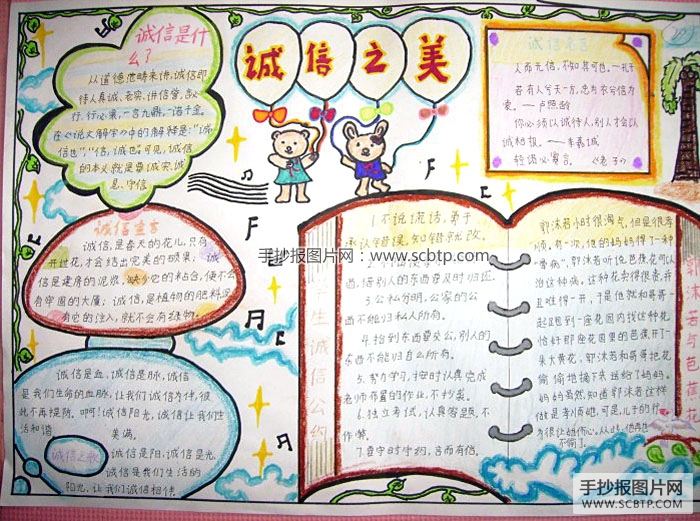 诚信之美
诚信是什
么？
从道德范畴来讲，诚信即
待人真诚、老实、讲信誉，言必
行、行必果，一言九鼎，一诺千金。
在《说文解字》中的解释是：“诚，
信也”，“信，诚也”。可见，诚信
的本义就是要诚实、诚
恳、守信
诚信名言
人而无信，不知其可也。—孔子
若有人兮天一方，忠为衣兮信为
裳。—卢照龄
你必须以诚待人，别人才会以
诚相报。—李嘉诚
轻诺必寡信。《老子》
诚信宣言
诚信，是春天的花儿，只有
开过花，才会结出完美的硕果；诚
信是建房的泥浆，缺少它的粘合，便不会
有牢固的大厦；诚信，是植物的肥料，没
有它的注入，就不会有绿物。
诚信是血，诚信是脉，诚信
是我们生命的血脉，让我们诚信为伴，彼
此不再提防。啊！诚信阳光，诚信让我们生
活和谐
美满。
诚信之歌
诚信是阳，诚信是光，
诚信是我们生活的
阳光，让我们诚信相伴。
学生诚信公约
1不说谎话，勇于
承认错误，知错就改。
西，借别人的东西要及时归还。
3.公私分明，公家的公
西不能归私人所有。
4.拾到东西要交公，别人的
东西不能归自己所有。
5.努力学习，按时认真完成
老师布置的作业，不抄袭。
6.独立考试，认真答题，不
作弊。
7.遵守时守约，言而有信。
郭沫若小时很淘气，但是很孝
顺。有一次，他的妈妈得了一种
“晕病”，郭沫若听说芭蕉花可以
治这种病。这种花卖得很贵，并
且难得一开，于是他就和哥哥一
起跑到一座花园内找这种花，
恰好那座花园里的芭蕉开了一
朵大黄花，郭沫若和哥哥把花
偷偷地摘下来送给了妈妈。
妈妈虽然知道郭沫若这样
做是孝顺她，可是，儿子的行
为很让她伤心。从此，他再也
不偷了。
手抄报图片网：www.scbtp.com
手抄报图片网
SCBTP.COM